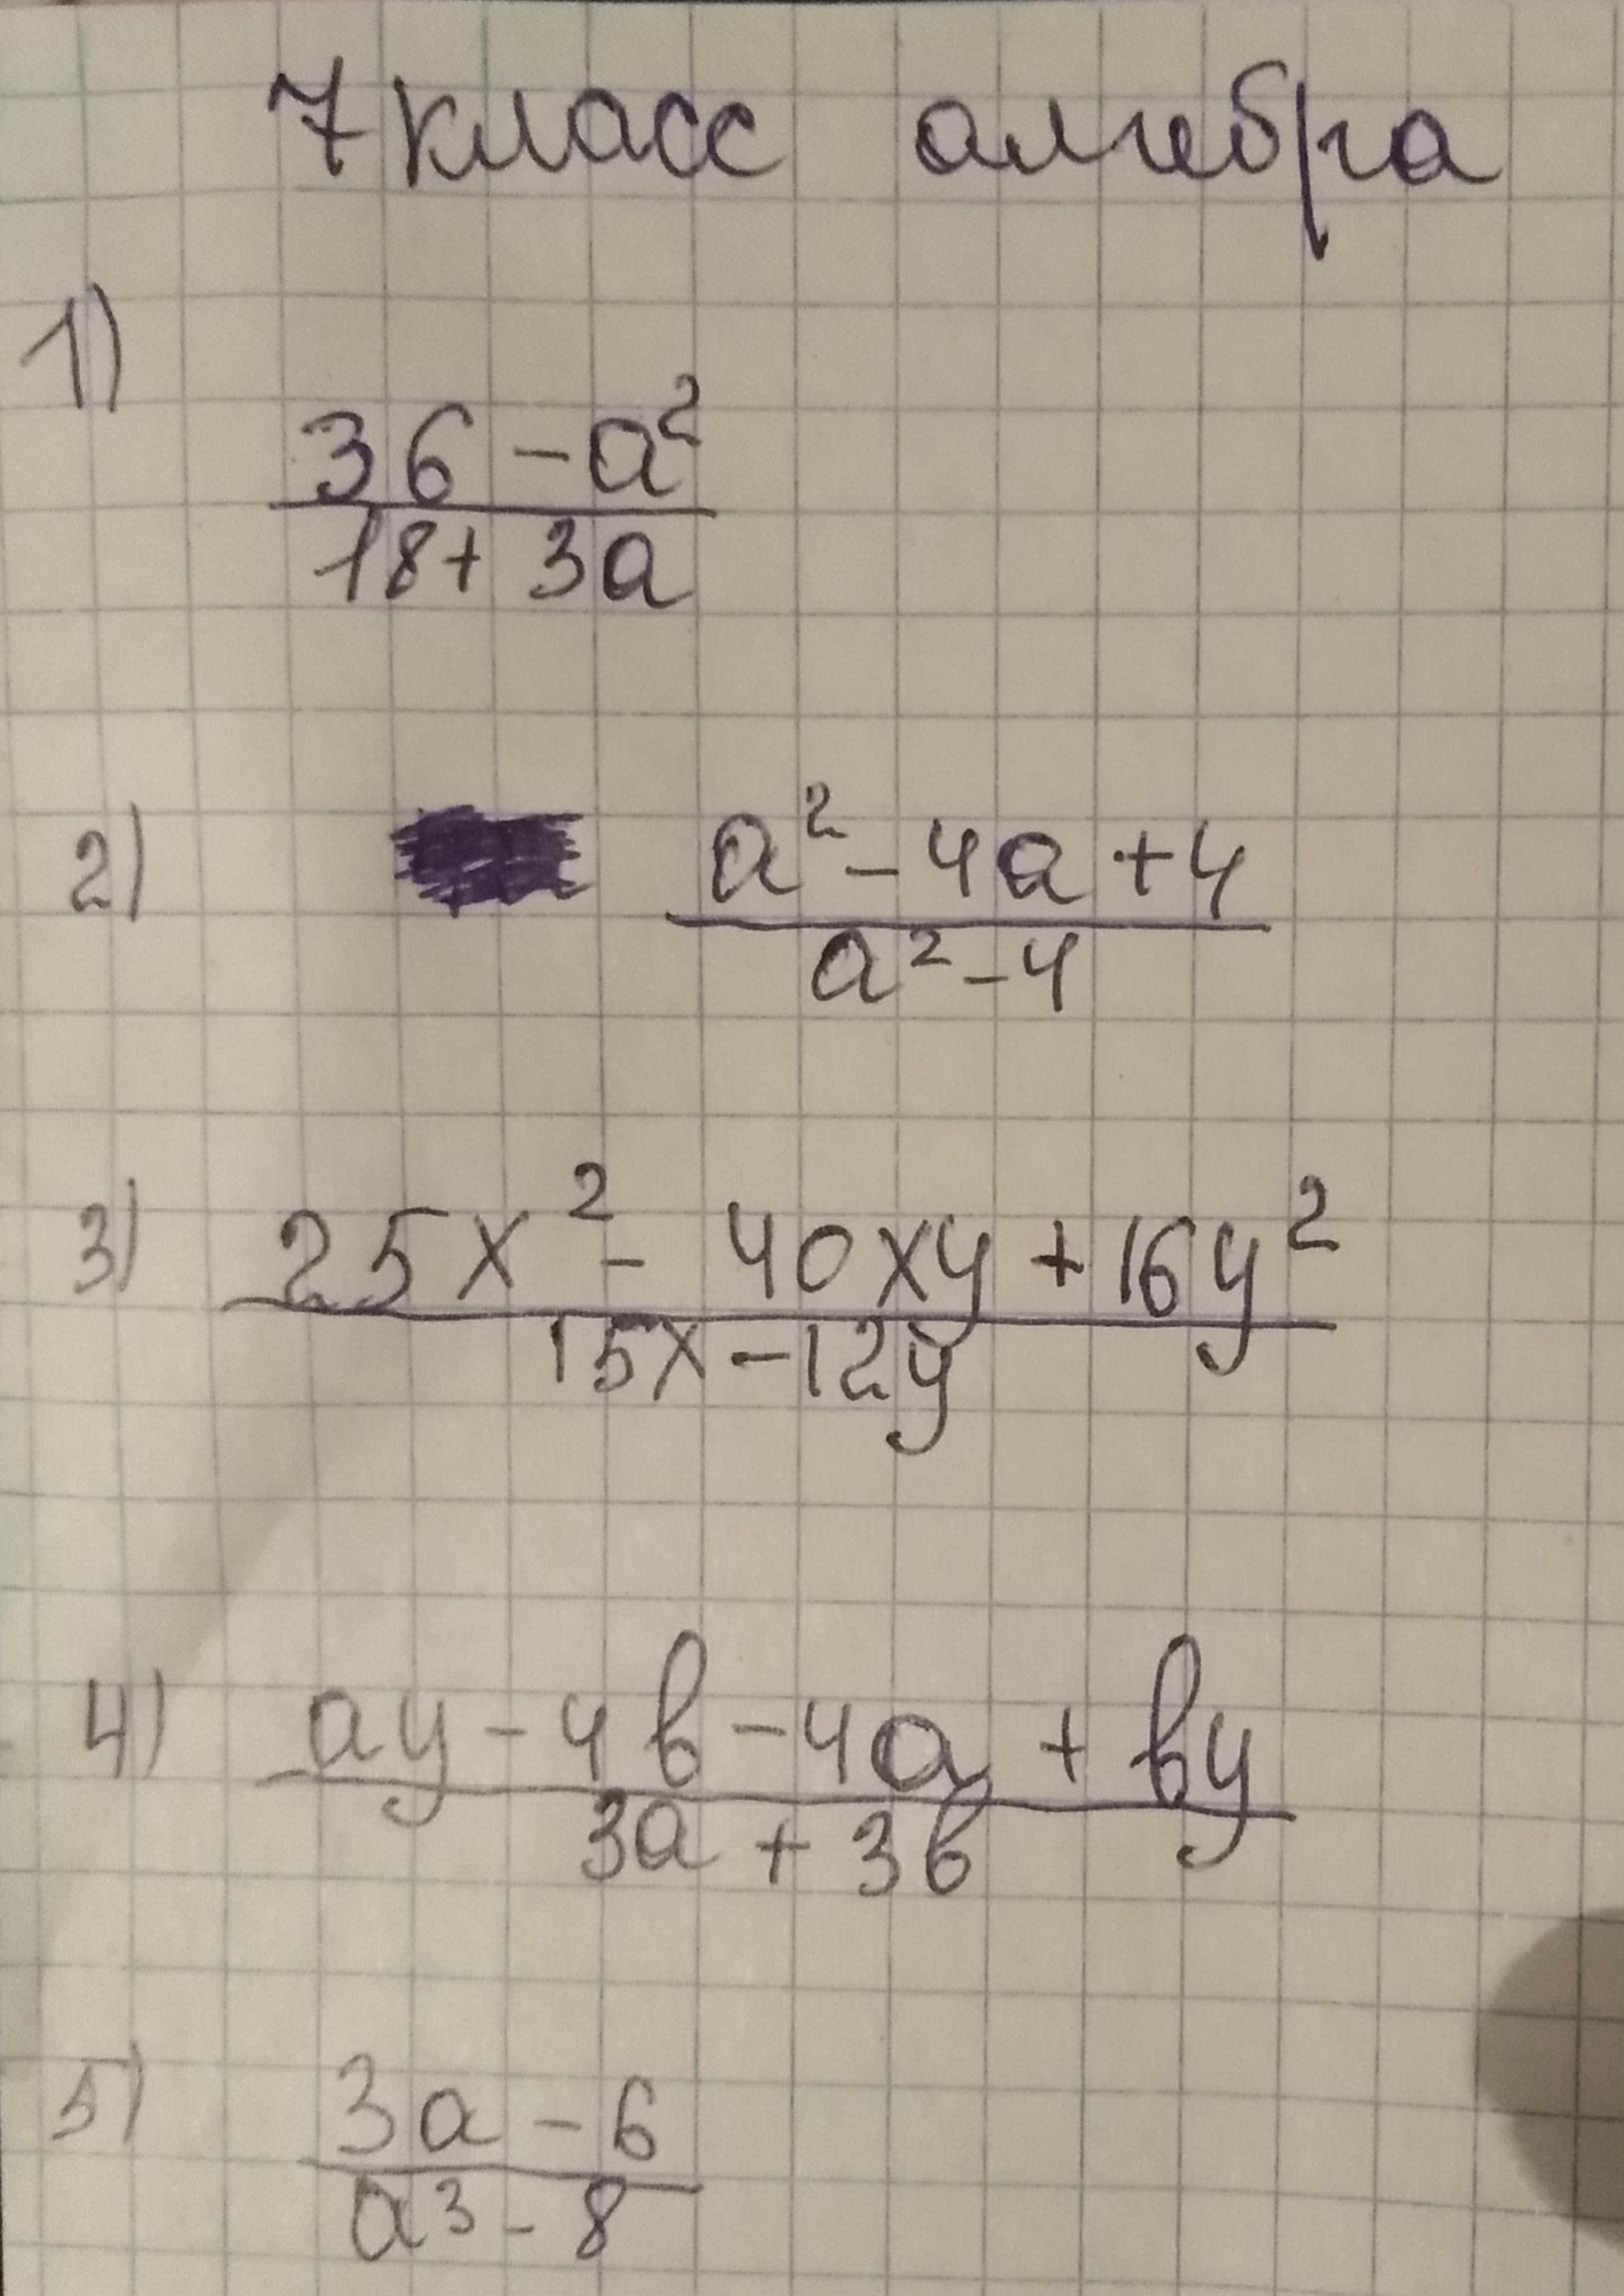 7 класс алгебра
1)
36 - a²
18 + 3a
2)
a² - 4a + 4
a² - 4
3)
25x² - 40xy + 16y²
15x - 12y
4)
ay - 4в - 4a + вy
3a + 3в
5)
3a - 6
a³ - 8